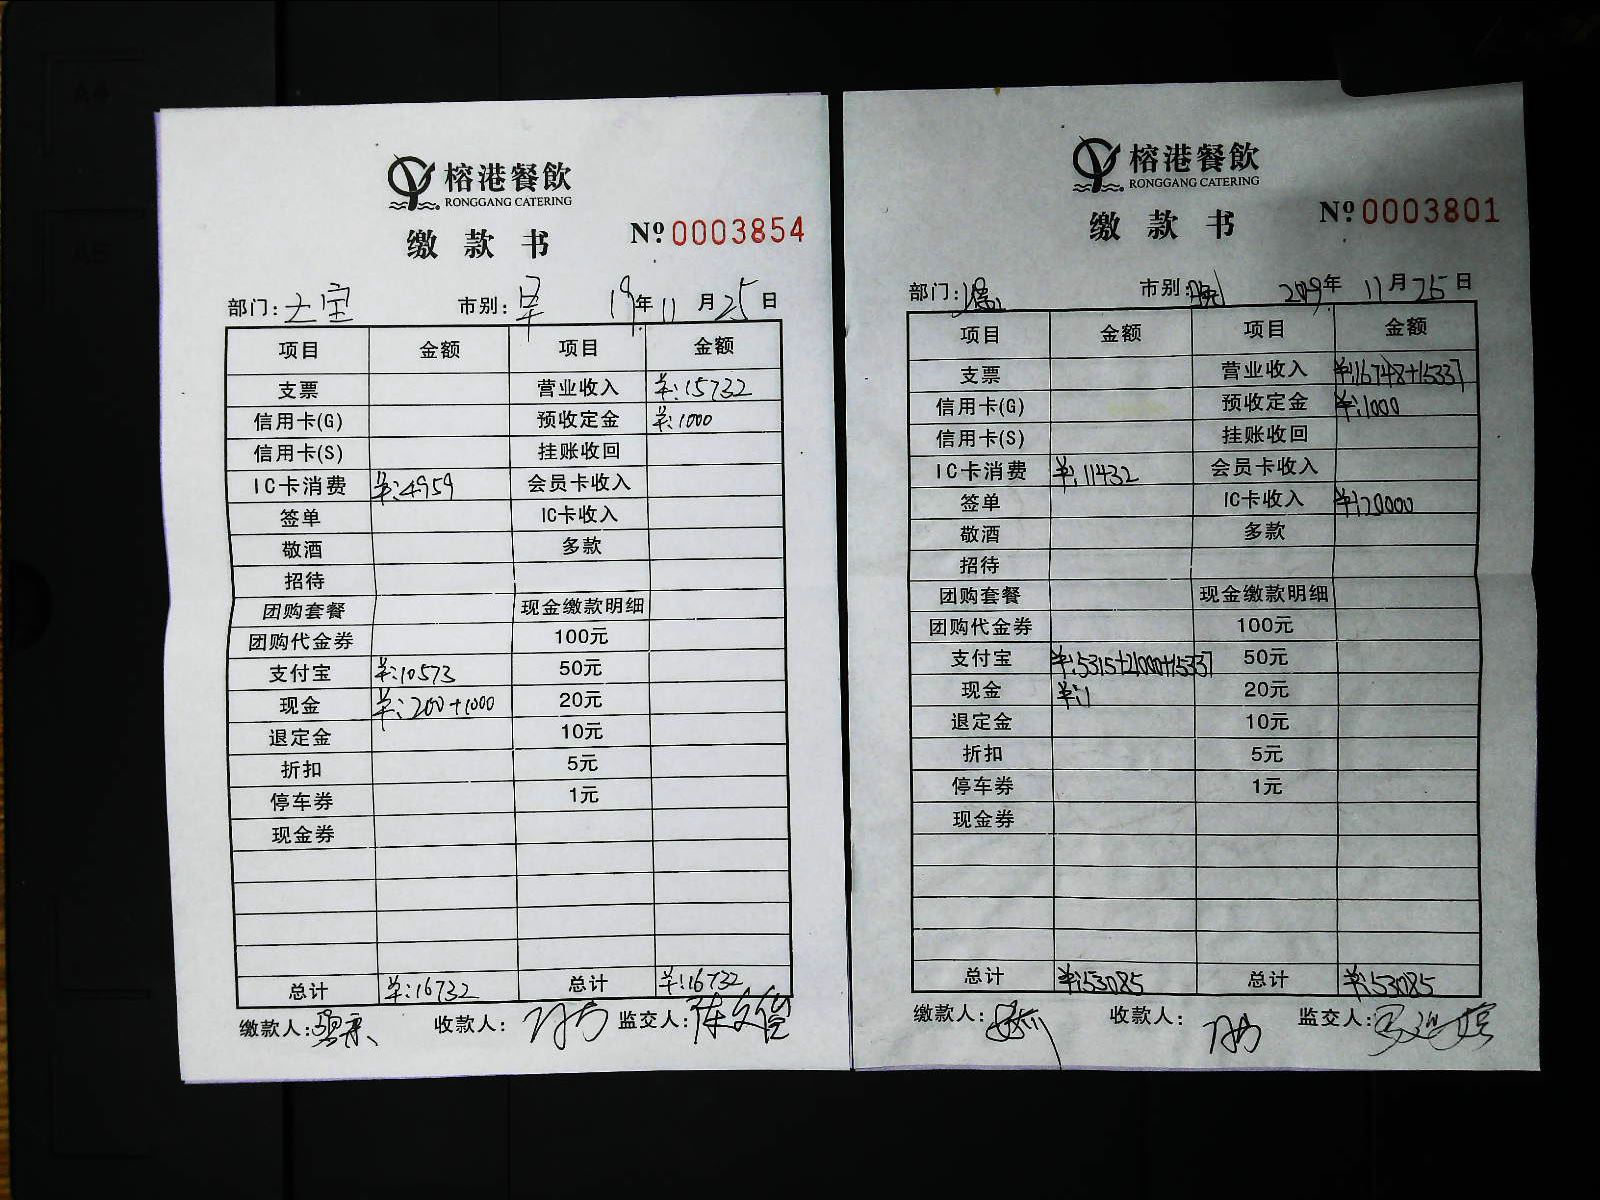 榕港餐飲
RONGGANG CATERING
缴款书
№ 0003854
部门: 市别:早 19年11月25日
项目 金额 项目 金额
支票 营业收入 ¥:15732
信用卡(G) 预收定金 ¥:1000
信用卡(S) 挂账收回
IC卡消费 ¥:4959 会员卡收入
签单 IC卡收入
敬酒 多款
招待
团购套餐 现金缴款明细
团购代金券 100元
支付宝 ¥:10573 50元
现金 ¥:200+1000 20元
退定金 10元
折扣 5元
停车券 1元
现金券
总计 ¥:16732 总计 ¥:16732
缴款人: 收款人: 监交人:
榕港餐飲
RONGGANG CATERING
缴款书
№ 0003801
部门: 市别:晚 2019年11月25日
项目 金额 项目 金额
支票 营业收入 ¥:16748+15337
信用卡(G) 预收定金 ¥:1000
信用卡(S) 挂账收回
IC卡消费 ¥:11432 会员卡收入
签单 IC卡收入 ¥:20000
敬酒 多款
招待
团购套餐 现金缴款明细
团购代金券 100元
支付宝 ¥:5315+21000+15337 50元
现金 ¥:1 20元
退定金 10元
折扣 5元
停车券 1元
现金券
总计 ¥:53085 总计 ¥:53085
缴款人: 收款人: 监交人: